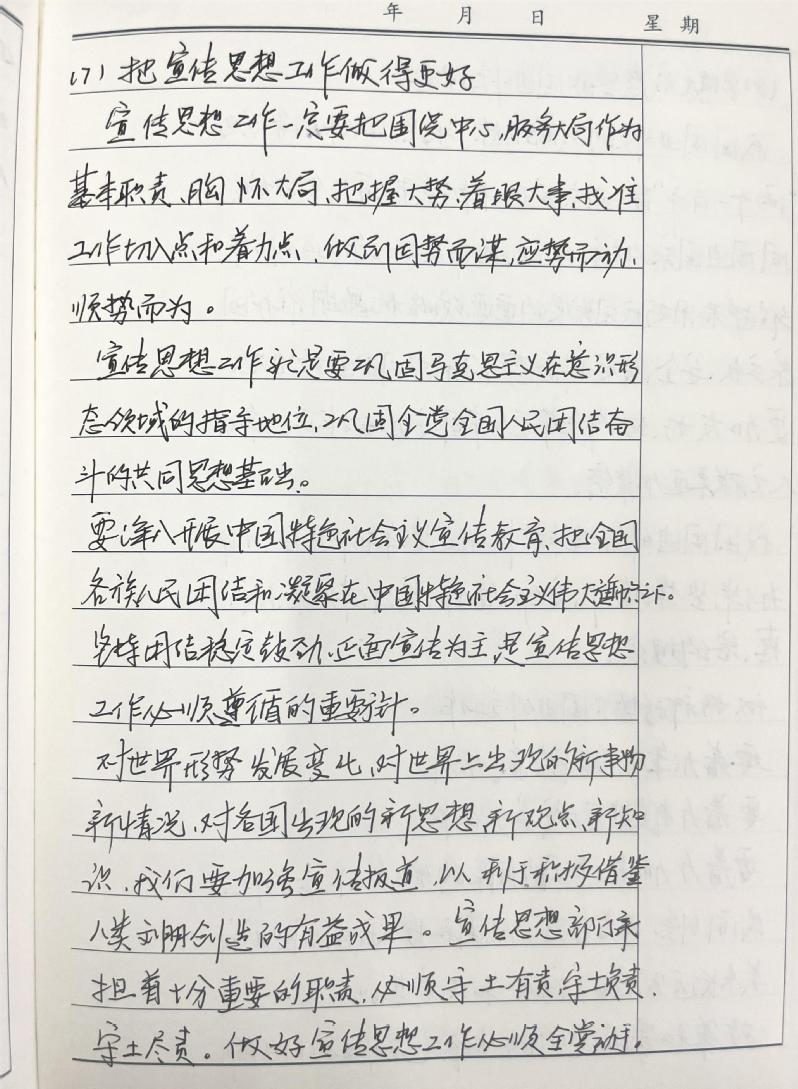 年 月 日 星期
(7) 把宣传思想工作做得更好
宣传思想工作一定要把围绕中心、服务大局作为
基本职责、胸怀大局、把握大势、着眼大事、找准
工作切入点和着力点、做到因势而谋、应势而动、
顺势而为。
宣传思想工作就是要巩固马克思主义在意识形
态领域的指导地位，巩固全党全国人民团结奋
斗的共同思想基础。
要深入开展中国特色社会主义宣传教育，把全国
各族人民团结和凝聚在中国特色社会主义伟大旗帜下。
坚持团结稳定鼓劲、正面宣传为主，是宣传思想
工作必须遵循的重要方针。
对世界形势发展变化，对世界上出现的新事物
新情况，对各国出现的新思想、新观点、新知
识，我们要加强宣传报道，以利于积极借鉴
人类文明创造的有益成果。宣传思想部门承
担着十分重要的职责，必须守土有责、守土负责、
守土尽责。做好宣传思想工作必须全党动手。